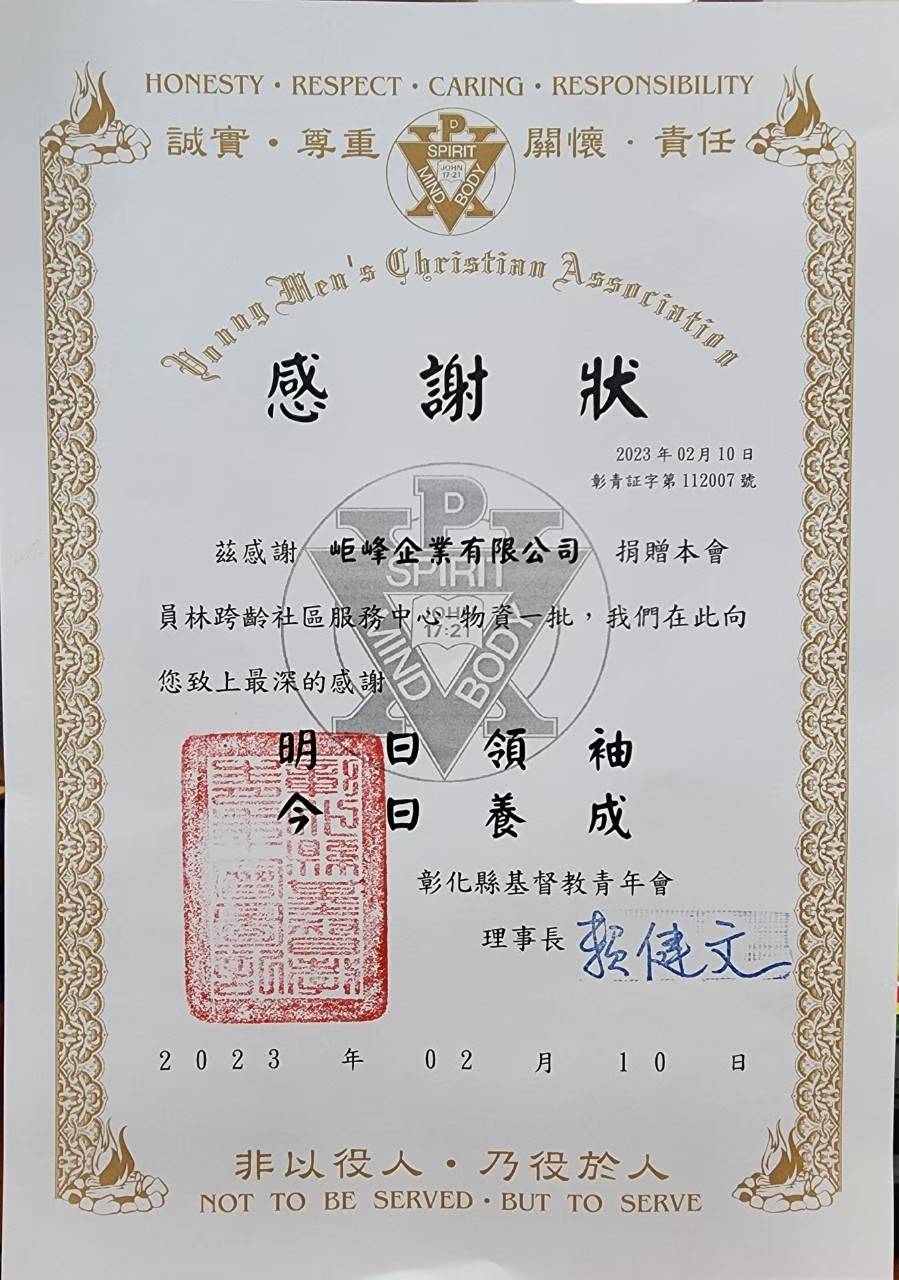 HONESTY · RESPECT · CARING · RESPONSIBILITY
誠實・尊重 關懷・責任
P
SPIRIT
JOHN
17:21
MIND BODY
Young Men's Christian Association
感謝狀
2023年02月10日
彰青証字第112007號
茲感謝 岠峰企業有限公司 捐贈本會
員林跨齡社區服務中心 物資一批，我們在此向
您致上最深的感謝
P
SPIRIT
JOHN
17:21
MIND BODY
明日領袖
今日養成
彰化縣基督教青年會
理事長 賴健文
2023年02月10日
非以役人・乃役於人
NOT TO BE SERVED · BUT TO SERVE